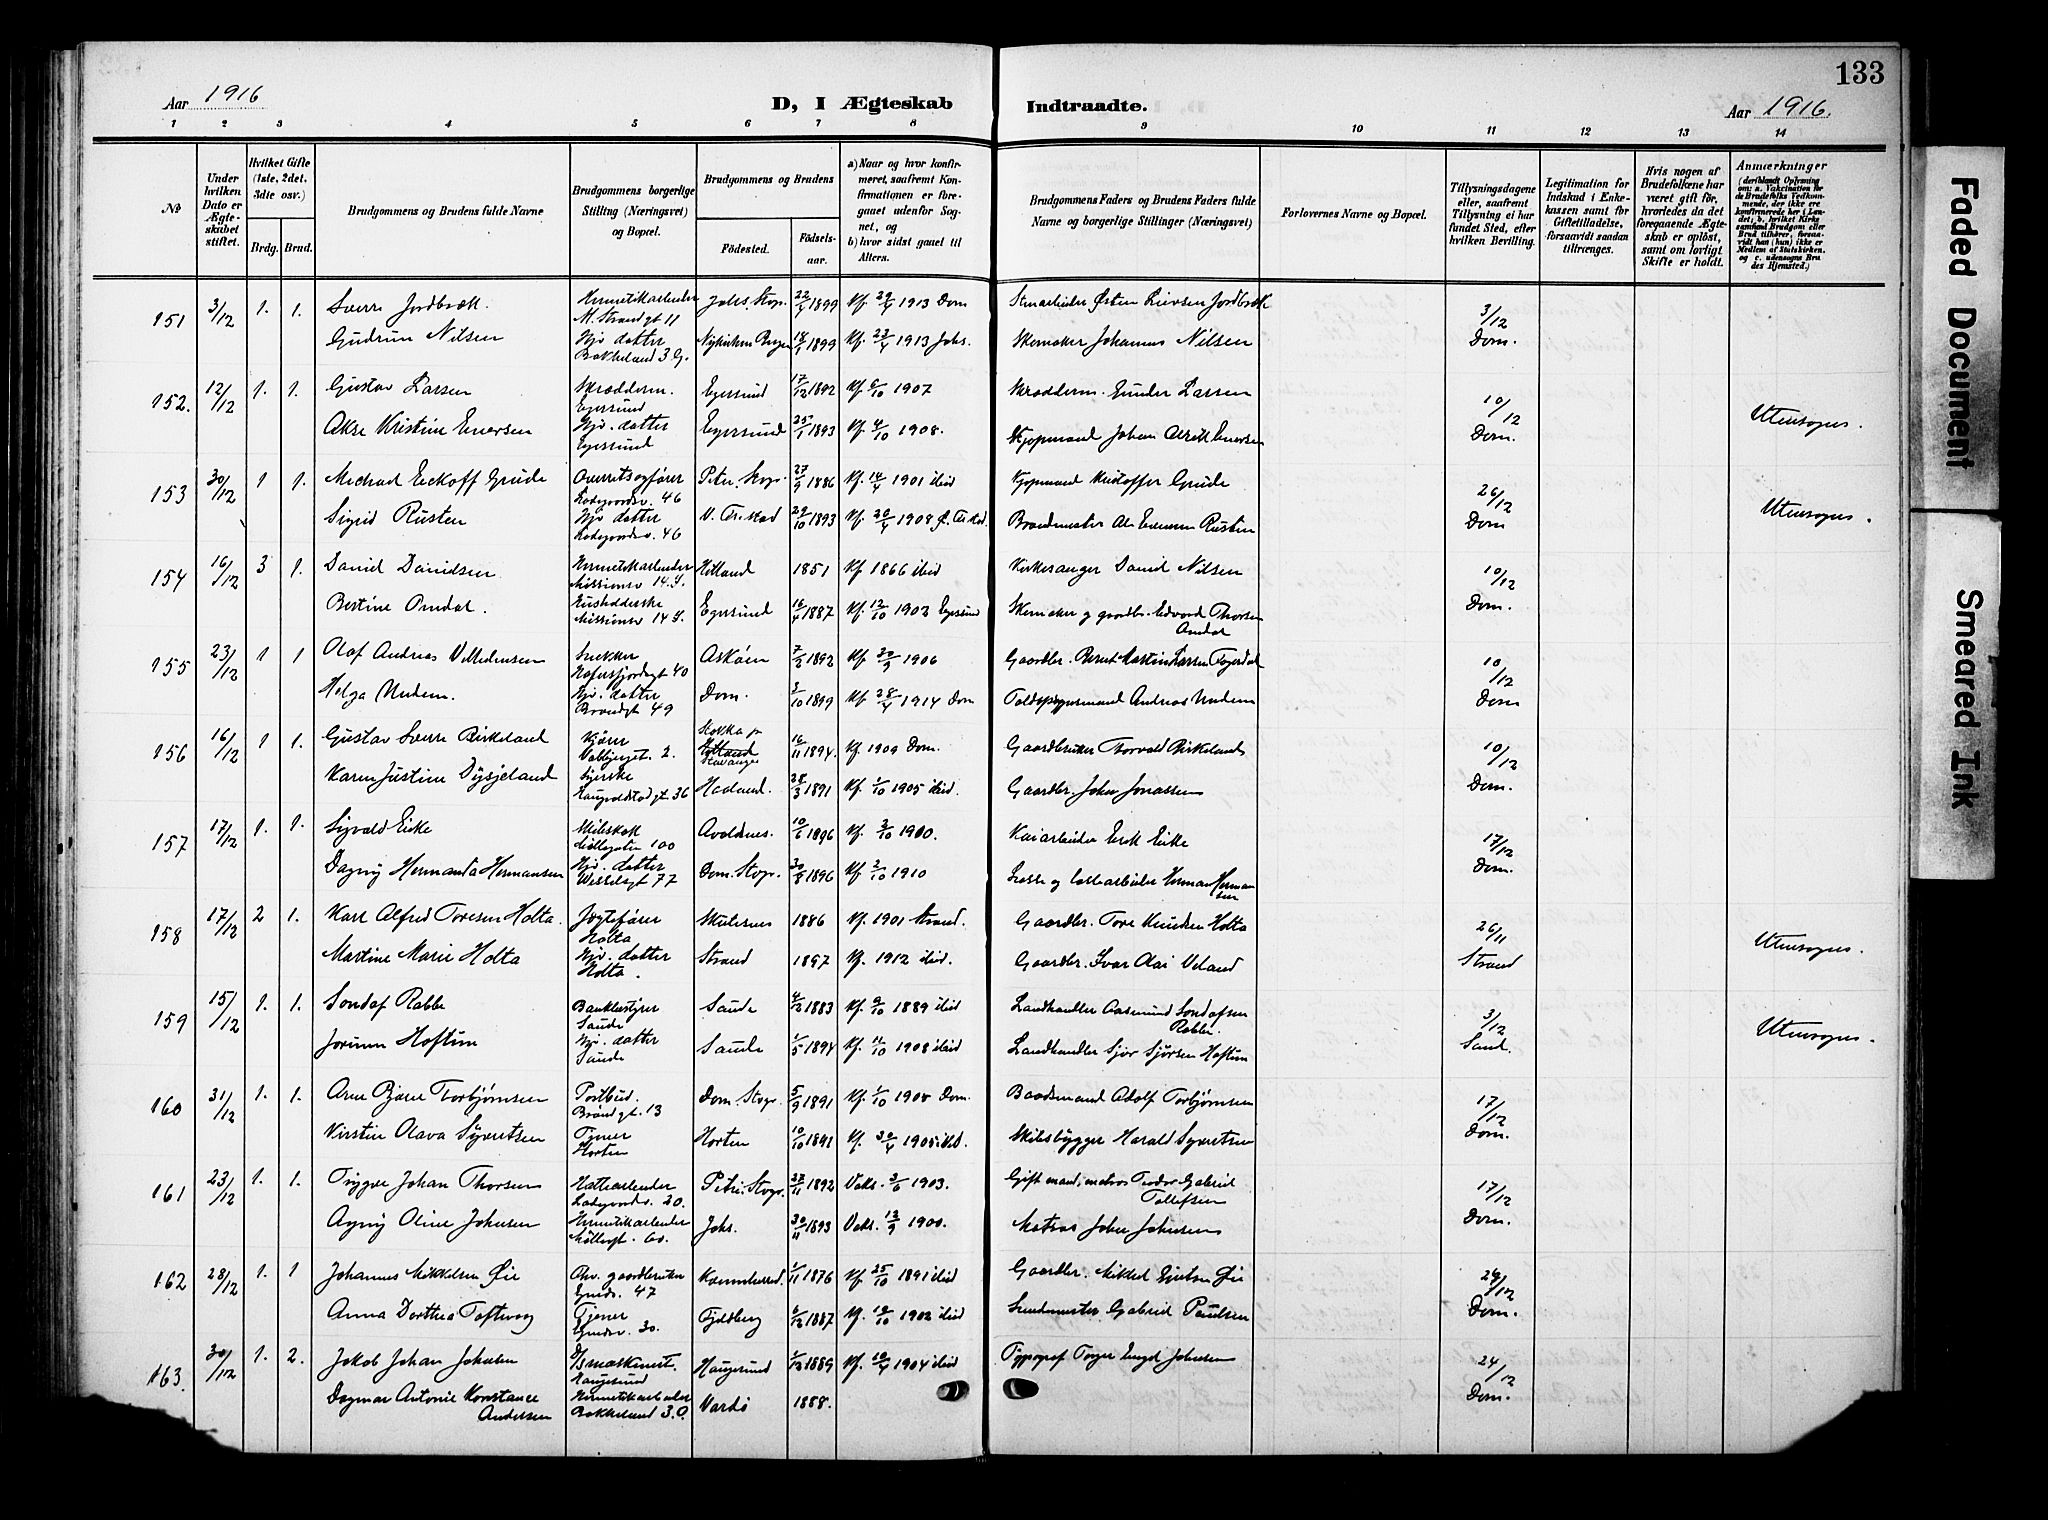 133
Aar 1916
D, I Ægteskab Indtraadte.
Aar 1916.
1 2 3 4 5 6 7 8 9 10 11 12 13 14
№
Under hvilken Dato er Ægteskabet stiftet.
Hvilket Gifte (1ste, 2det, 3die osv.)
Brdg. Brud.
Brudgommens og Brudens fulde Navne
Brudgommens borgerlige Stilling (Næringsvei) og Bopæl.
Brudgommens og Brudens
Fødested. Fødselsaar.
a) Naar og hvor konfirmeret, saafremt Konfirmationen er foregaaet udenfor Sognet, og
b) hvor sidst gaaet til Alters.
Brudgommens Faders og Brudens Faders fulde Navne og borgerlige Stillinger (Næringsvei)
Forlovernes Navne og Bopæl.
Tillysningsdagene eller, saafremt Tillysning ei har fundet Sted, efter hvilken Bevilling.
Legitimation for Indskud i Enkekassen samt for Giftetilladelse, forsaavidt saadan tiltrænges.
Hvis nogen af Brudefolkene har været gift før, hvorledes da det foregaaende Ægteskab er opløst, samt om lovligt Skifte er holdt.
Anmærkninger
(deriblandt Oplysning om: a. Vaccination for de Brudefolks Vedkommende, der ikke ere konfirmerede her i Landet, b. hvilket Kirkesamfund Brudgom eller Brud tilhører, forsaavidt han (hun) ikke er Medlem af Statskirken, og c. udensogns Brudes Hjemsted.)
151 3/12 1. 1. Sverre Jordbræk. Hermetikarbeider Johs. Stvgr. 22/4 1899 Kf. 29/4 1913 Dom Stenarbeider Østen Jordbræk 3/12
M. Strandgt 11
Gudrun Nilsen Hjv. datter 1899 Kf. 23/4 1913 Johs. Skomaker Johannes Nilsen Dom.
Bakkeland 3 G.
152. 12/12 1. 1. Gustav Larsen Skrædderm. Egersund 17/12 1892 Kf 6/10 1907 Skrædderm. Gunder Larsen 10/12
Egersund
Akse Kristine Hjv. datter Egersund 25/1 1893 Kf 4/10 1908. Kjøpmand Johan Dom. Utensogns.
Egersund
153 30/12 1 1. Michael Eckoff Grude Overretssagfører Petri. Stvgr. 27/9 1886 Kf. 14/4 1901 ibid Kjøpmand Kristoffer Grude 26/12
Ladegaardsv. 46
Sigrid Rusten Hjv. datter 29/10 1893 Kf. 20/4 1908 Rusten Dom Utensogns.
Ladegaardsv. 46
154 16/12 3 1. David Davidsen Hermetikarbeider Hetland 1851 Kf 1866 ibid David Nilsen 10/12
Missionsv 14.
Bertine Omdal. Husholderske Egersund 16/4 1887 Kf. 12/10 1902 Egersund Skomaker og gaardbr. Edvard Thorsen Dom.
Missionsv 14 Omdal
155 23/12 1 1 Olaf Andreas Snekker Askøen 7/2 1892 Kf 1906 Gaardbr. Bernt Martin Larsen 10/12
Hafrsfjordsgt 40
Helga Undem. Hjv. datter Dom. 3/10 1899 Kf 28/4 1914 Dom Andreas Undem Dom
Brandgt 49
156 16/12 1 1. Gustav Sverre Birkeland Kjører 16/11 1894. Kf. 1909 Dom. Gaardbruker Torvald Birkeland 10/12
Valbjerget. 2. Stavanger
Karen Justine Dysjeland Syerske 28/3 1891 Kf. 1/10 1905 ibid. Gaardbr. John Jonassen Dom.
36
157 17/12 1. 1. Sigvald Eike Avaldsnes. 10/6 1896 Kf. 2/10 1910. Kaiarbeider Erik Eike 17/12
100
Dagny Hermanda Hermansen Hjv. datter Dom. Stvgr. 1896 Kf 2/10 1910 Losse og lastearbeider Herman Hermansen Dom.
Wesselsgt 77
158 17/12 2 1. Karl Alfred Toresen Holta. Jægtefører 1886 Kf. 1901 Strand. Gaardbr. Tore Knudsen Holta 26/11
Holta
Martine Marie Holta Hjv. datter Strand 1897 Kf. 1912 ibid. Gaardbr. Ivar Veland Strand Utensogns.
Holta.
159 15/12 1. 1. Sondof Rabbe Bankbestyrer Saude 4/2 1883 Kf. 1889 ibid Landhandler Aasmund Sondofsen 3/12
Saude Rabbe.
Jorunn Hoftun Hjv. datter Saude 1/5 1894 Kf. 11/10 1908 ibid Landhandler Sjør Sjørsen Hoftun Saud. Utensogns.
Saude
160 31/12 1. 1. Arne Bjarne Torbjørnsen Postbud. Dom. Stvgr. 5/9 1891 Kf. 1/10 1905 Dom. Baadsmand Adolf Torbjørnsen 17/12
Brandgt. 13
Kirstin Olava Syvertsen Tjener Horten 10/10 1891 Kf. 30/4 1905 ibid. Skibsbygger Harald Syvertsen Dom.
Horten
161 23/12 1. 1. Trygve Johan Thorsen Hattearbeider Petri. Stvgr. 27/11 1892 Vaks. 3/6 1903. Gift mand, matros Teodor Gabriel 17/12
Ladegaardsv. 20. Tollefsen
Agny Oline Johnsen Hermetikarbeider Johs. 30/11 1893 Vaks. 13/9 1900. Matros John Johnsen Dom.
Møllergt. 60.
162 28/12 1. 1 Johannes Mikkelsen Øie gaardbruker 1/11 1876 Kf 25/10 1891 ibid Gaardbr. Mikkel Øie 24/12
47
Anna Dorthea Toftevaag Tjener Fjeldberg 6/12 1887 Kf. 19/10 1902 ibid Gabriel Paulsen Dom.
30.
163. 30/12 1. 2. Jakob Johan Johnsen D/Smaskinist. Haugesund 1889 Kf. 10/4 1904 ibid Typograf Torger Johnsen 24/12
Haugesund
Dagmar Antonie Konstance Hermetikarbeider Vardø 1888. Dom.
Andersen Bakkeland 3.
Faded Document
Smeared Ink